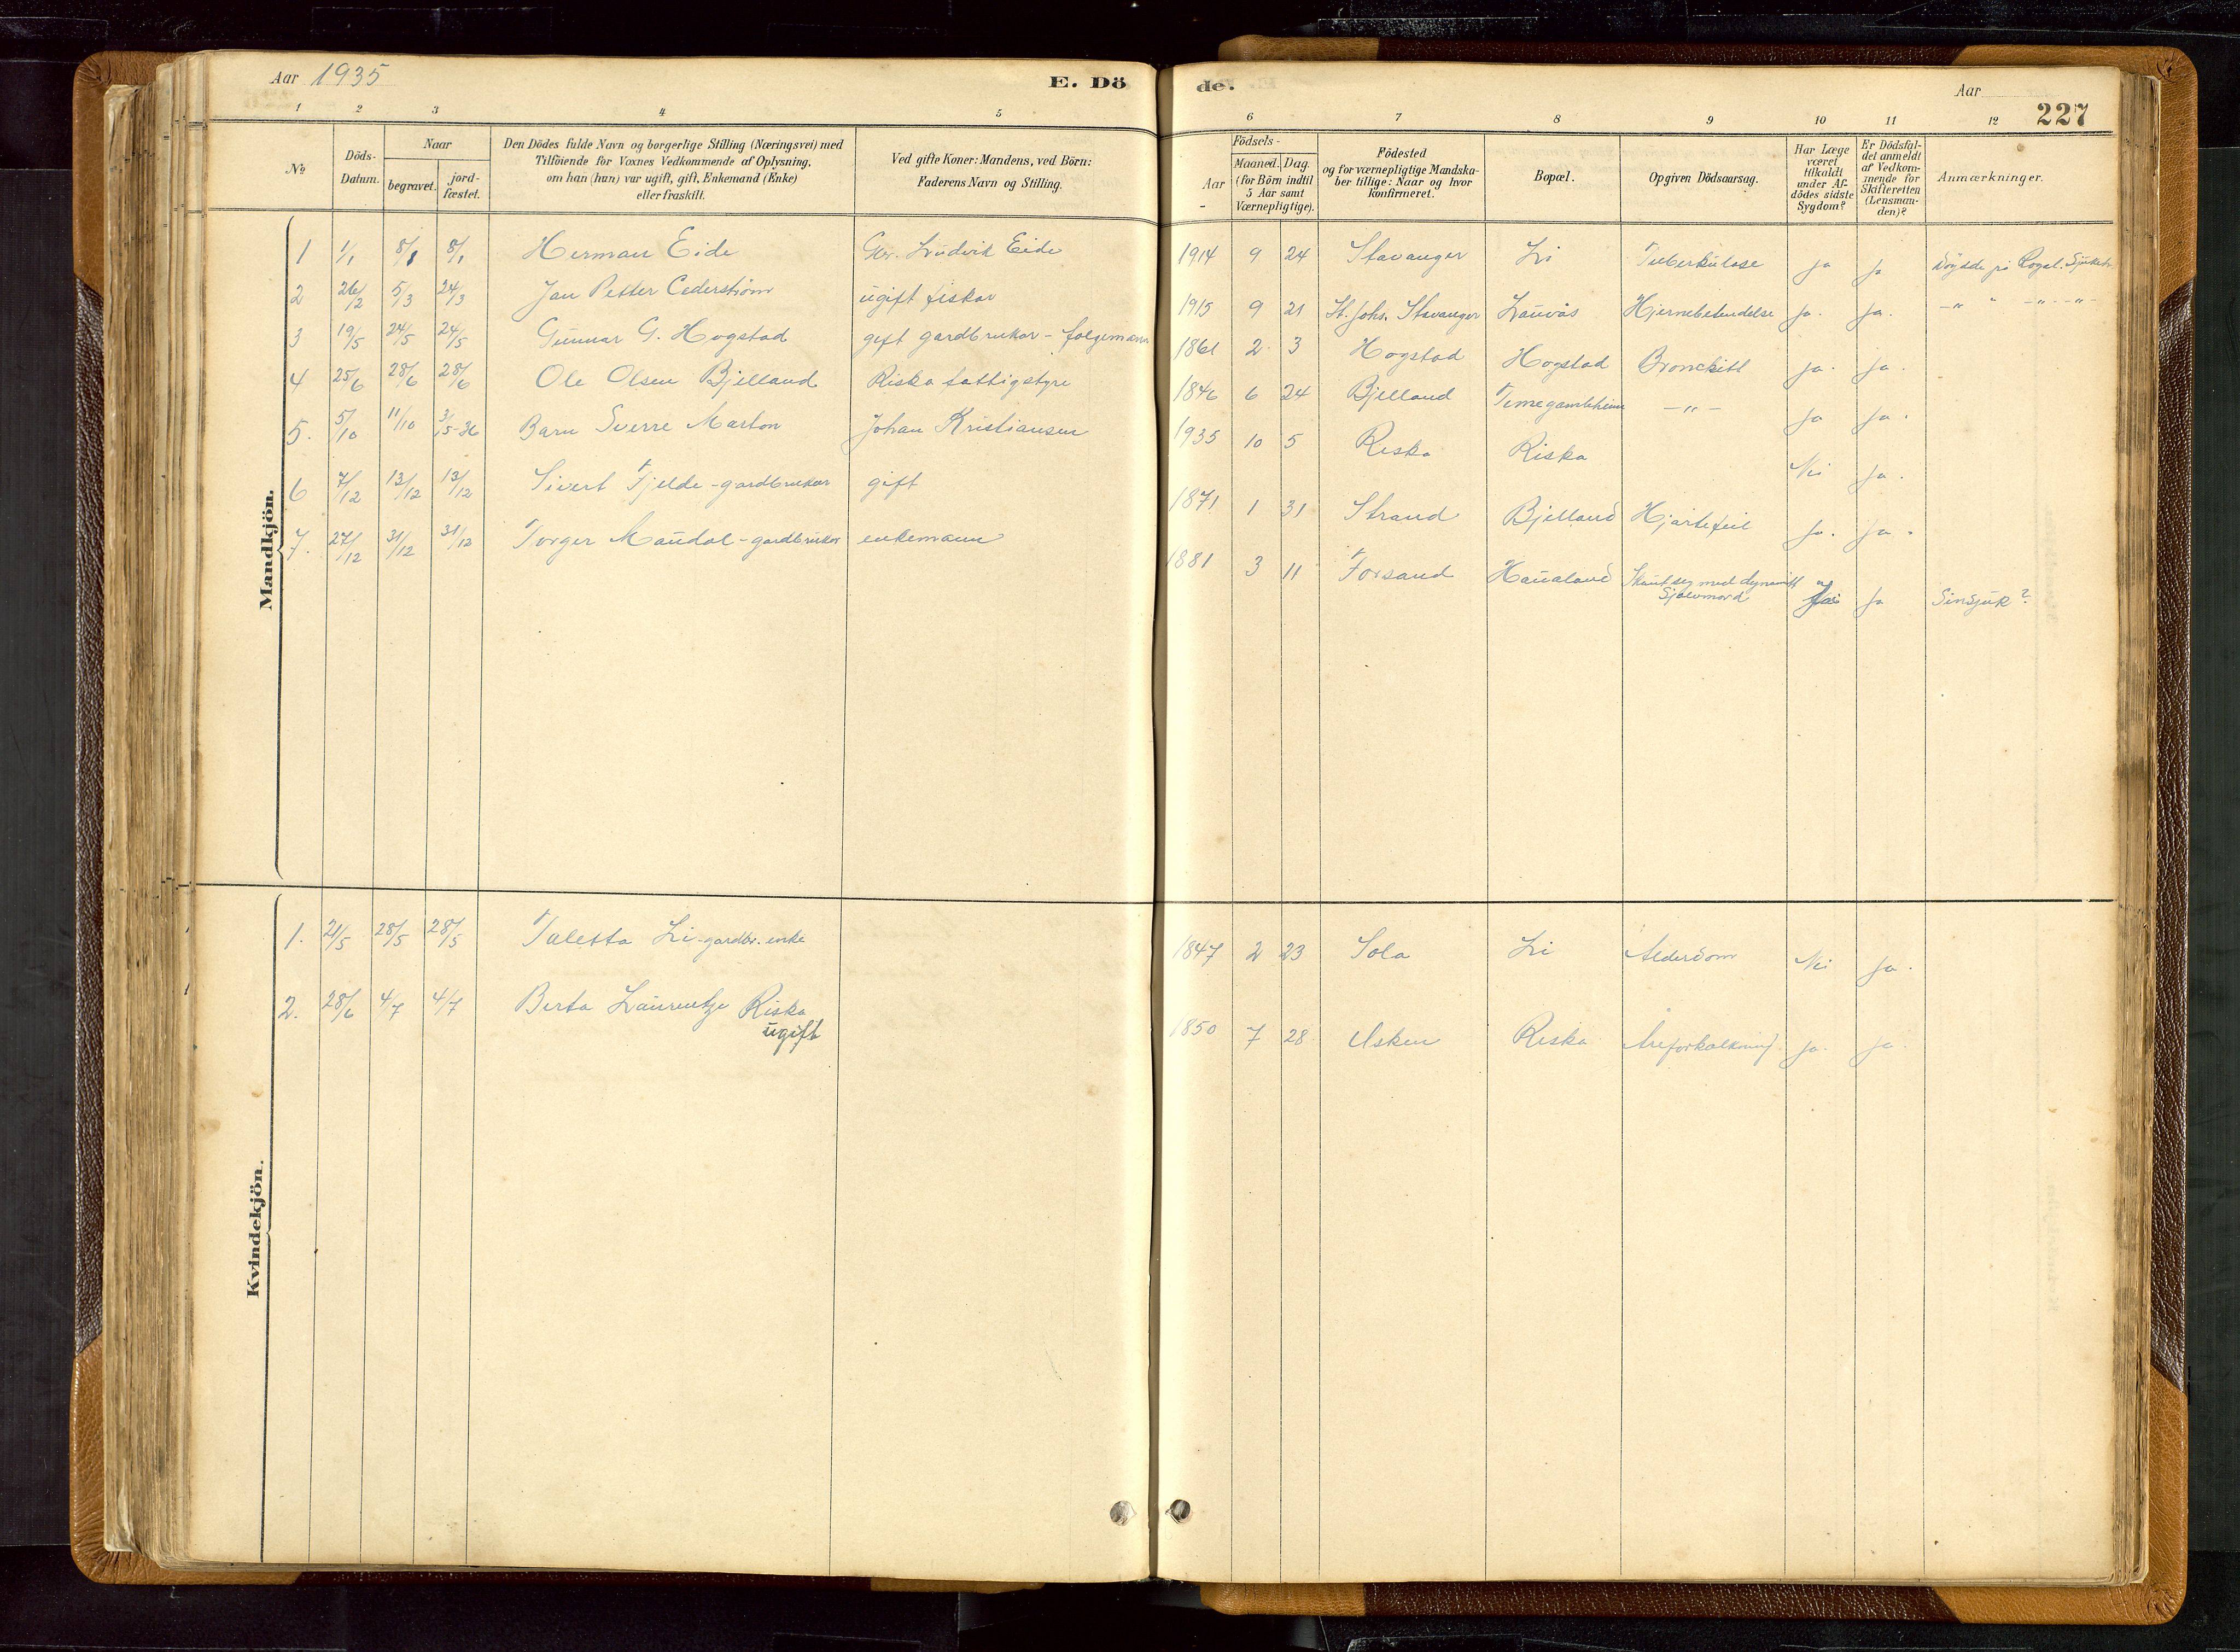 Aar 1935
E. Dö
de.
Aar
227
1 2 3 4 5 6 7 8 9 10 11 12
№
Döds-
Datum.
Naar
begravet.
jord-
fæstet.
Den Dödes fulde Navn og borgerlige Stilling (Næringsvei) med
Tilföiende for Voxnes Vedkommende af Oplysning,
om han (hun) var ugift, gift, Enkemand (Enke)
eller fraskilt.
Ved gifte Koner: Mandens, ved Börn:
Faderens Navn og Stilling.
Födsels-
Aar
Maaned. Dag.
(for Börn indtil
5 Aar samt
Værnepligtige).
Födested
og for værnepligtige Mandska-
ber tillige: Naar og hvor
konfirmeret.
Bopæl.
Opgiven Dödsaarsag.
Har Læge
været
tilkaldt
under Af-
dödes sidste
Sygdom?
Er Dödsfal-
det anmeldt
af Vedkom-
mende for
Skifteretten
(Lensman-
den)?
Anmærkninger.
Mandkjön.
1 1/1 8/1 8/1 Herman Eide Gbr. Ludvik Eide 1914 9 24 Stavanger Li Tuberkulose ja ja Döydde på Rogal. Sjukeh.
2 26/2 5/3 24/3 Jan Petter Cederström ugift fiskar 1915 9 21 St. Johs. Stavanger Lauvås Hjernebetendelse ja. ja. -"- " -"- -"-
3 19/5 24/5 24/5 Gunnar G. Hogstad gift gardbrukar - folgemann 1861 2 3 Hogstad Hogstad Bronchitt ja. ja.
4 25/6 28/6 28/6 Ole Olsen Bjelland Riska fattigstyre 1846 6 24 Bjelland Timegamleheim -"- ja ja.
5. 5/10 11/10 3/5-36 Barn Sverre Marton Johan Kristiansen 1935 10 5 Riska Riska Nei ja.
6 7/12 13/12 13/12 Sivert Fjelde - gardbrukar gift 1871 1 31 Strand Bjelland Hjartefeil ja. ja.
7. 27/12 31/12 31/12 Torger Maudal - gardbrukar enkemann 1881 3 11 Forsand Haualand Skaut seg med dynamitt
Sjølvmord ja Sinsjuk?
Kvindekjön.
1. 21/5 28/5 28/5 Taletta Li - gardbr. enke 1847 2 23 Sola Li Alderdom Nei ja.
2. 28/6 4/7 4/7 Berta Laurentze Riska
ugift 1850 7 28 Usken Riska Åreforkalkning. ja. ja.